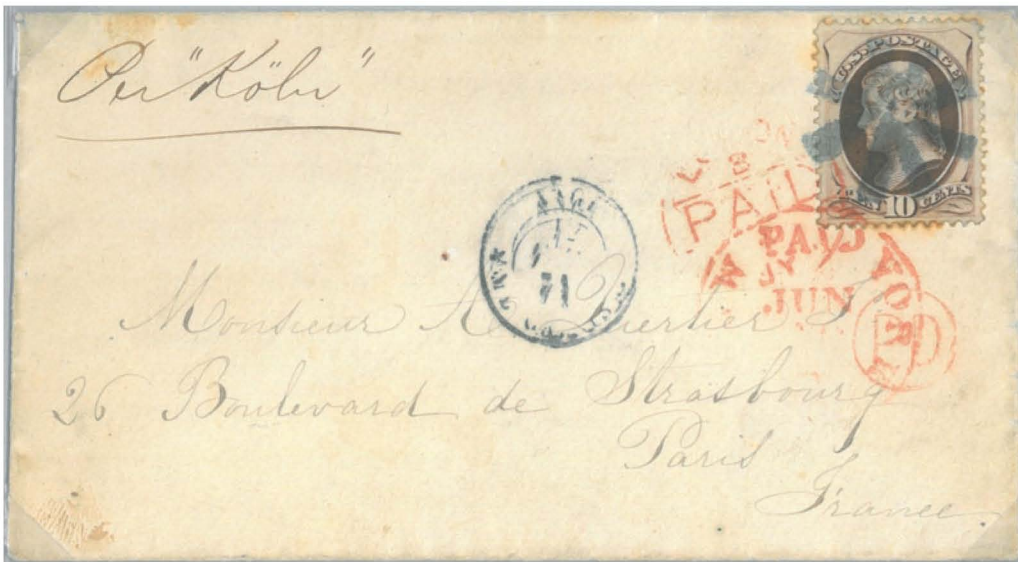 Per "Köln"
U.S. POSTAGE
10 CENTS
PAID
PAID
JUN
PD
71
Monsieur
26 Boulevard de Strasbourg
Paris
France